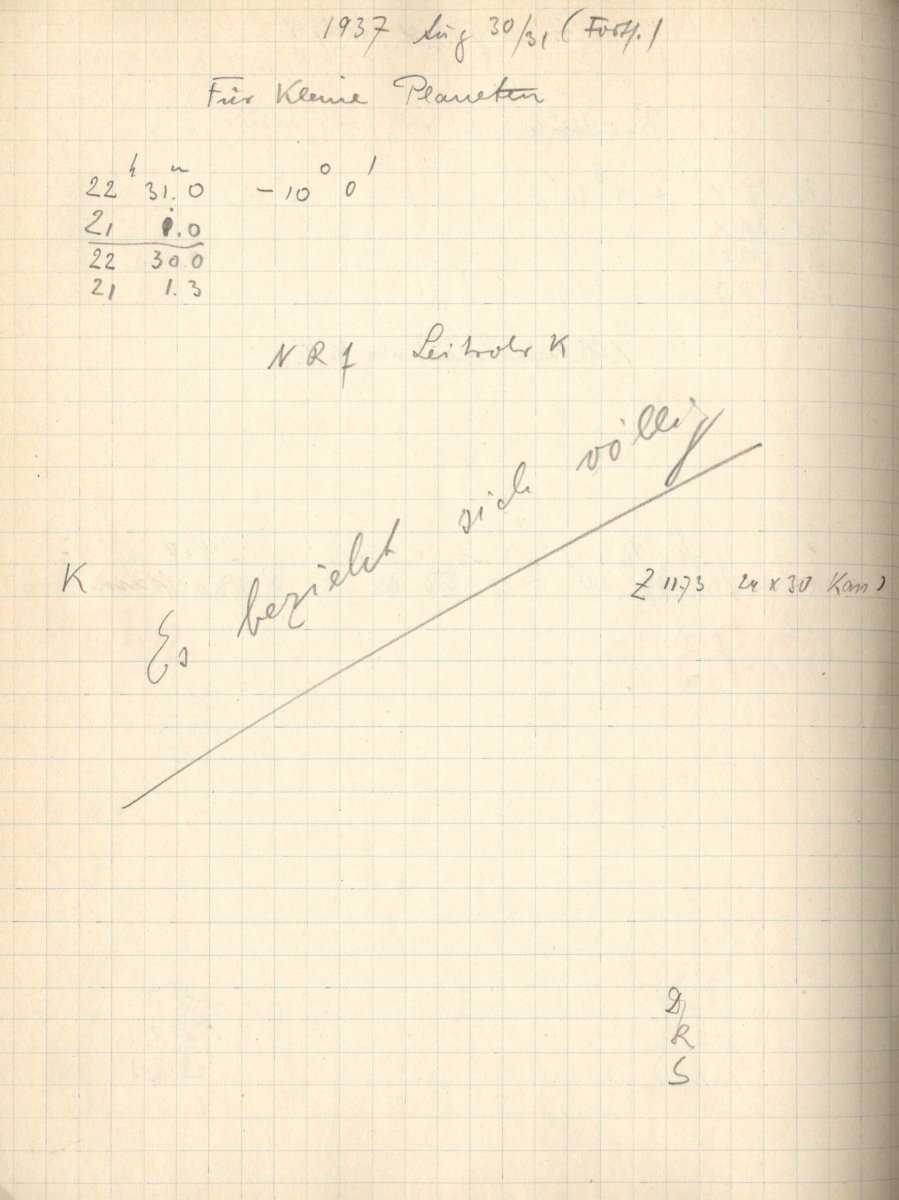 1937 Aug 30/31 (Forts.)
Für Kleine Planeten
22 h 31. m 0 -10° 0'
21 1.0
22 30 0
21 1.3
N R f Leitrohr K
Es bezieht sich völlig
K
Z 1173 24 x 30
R
S